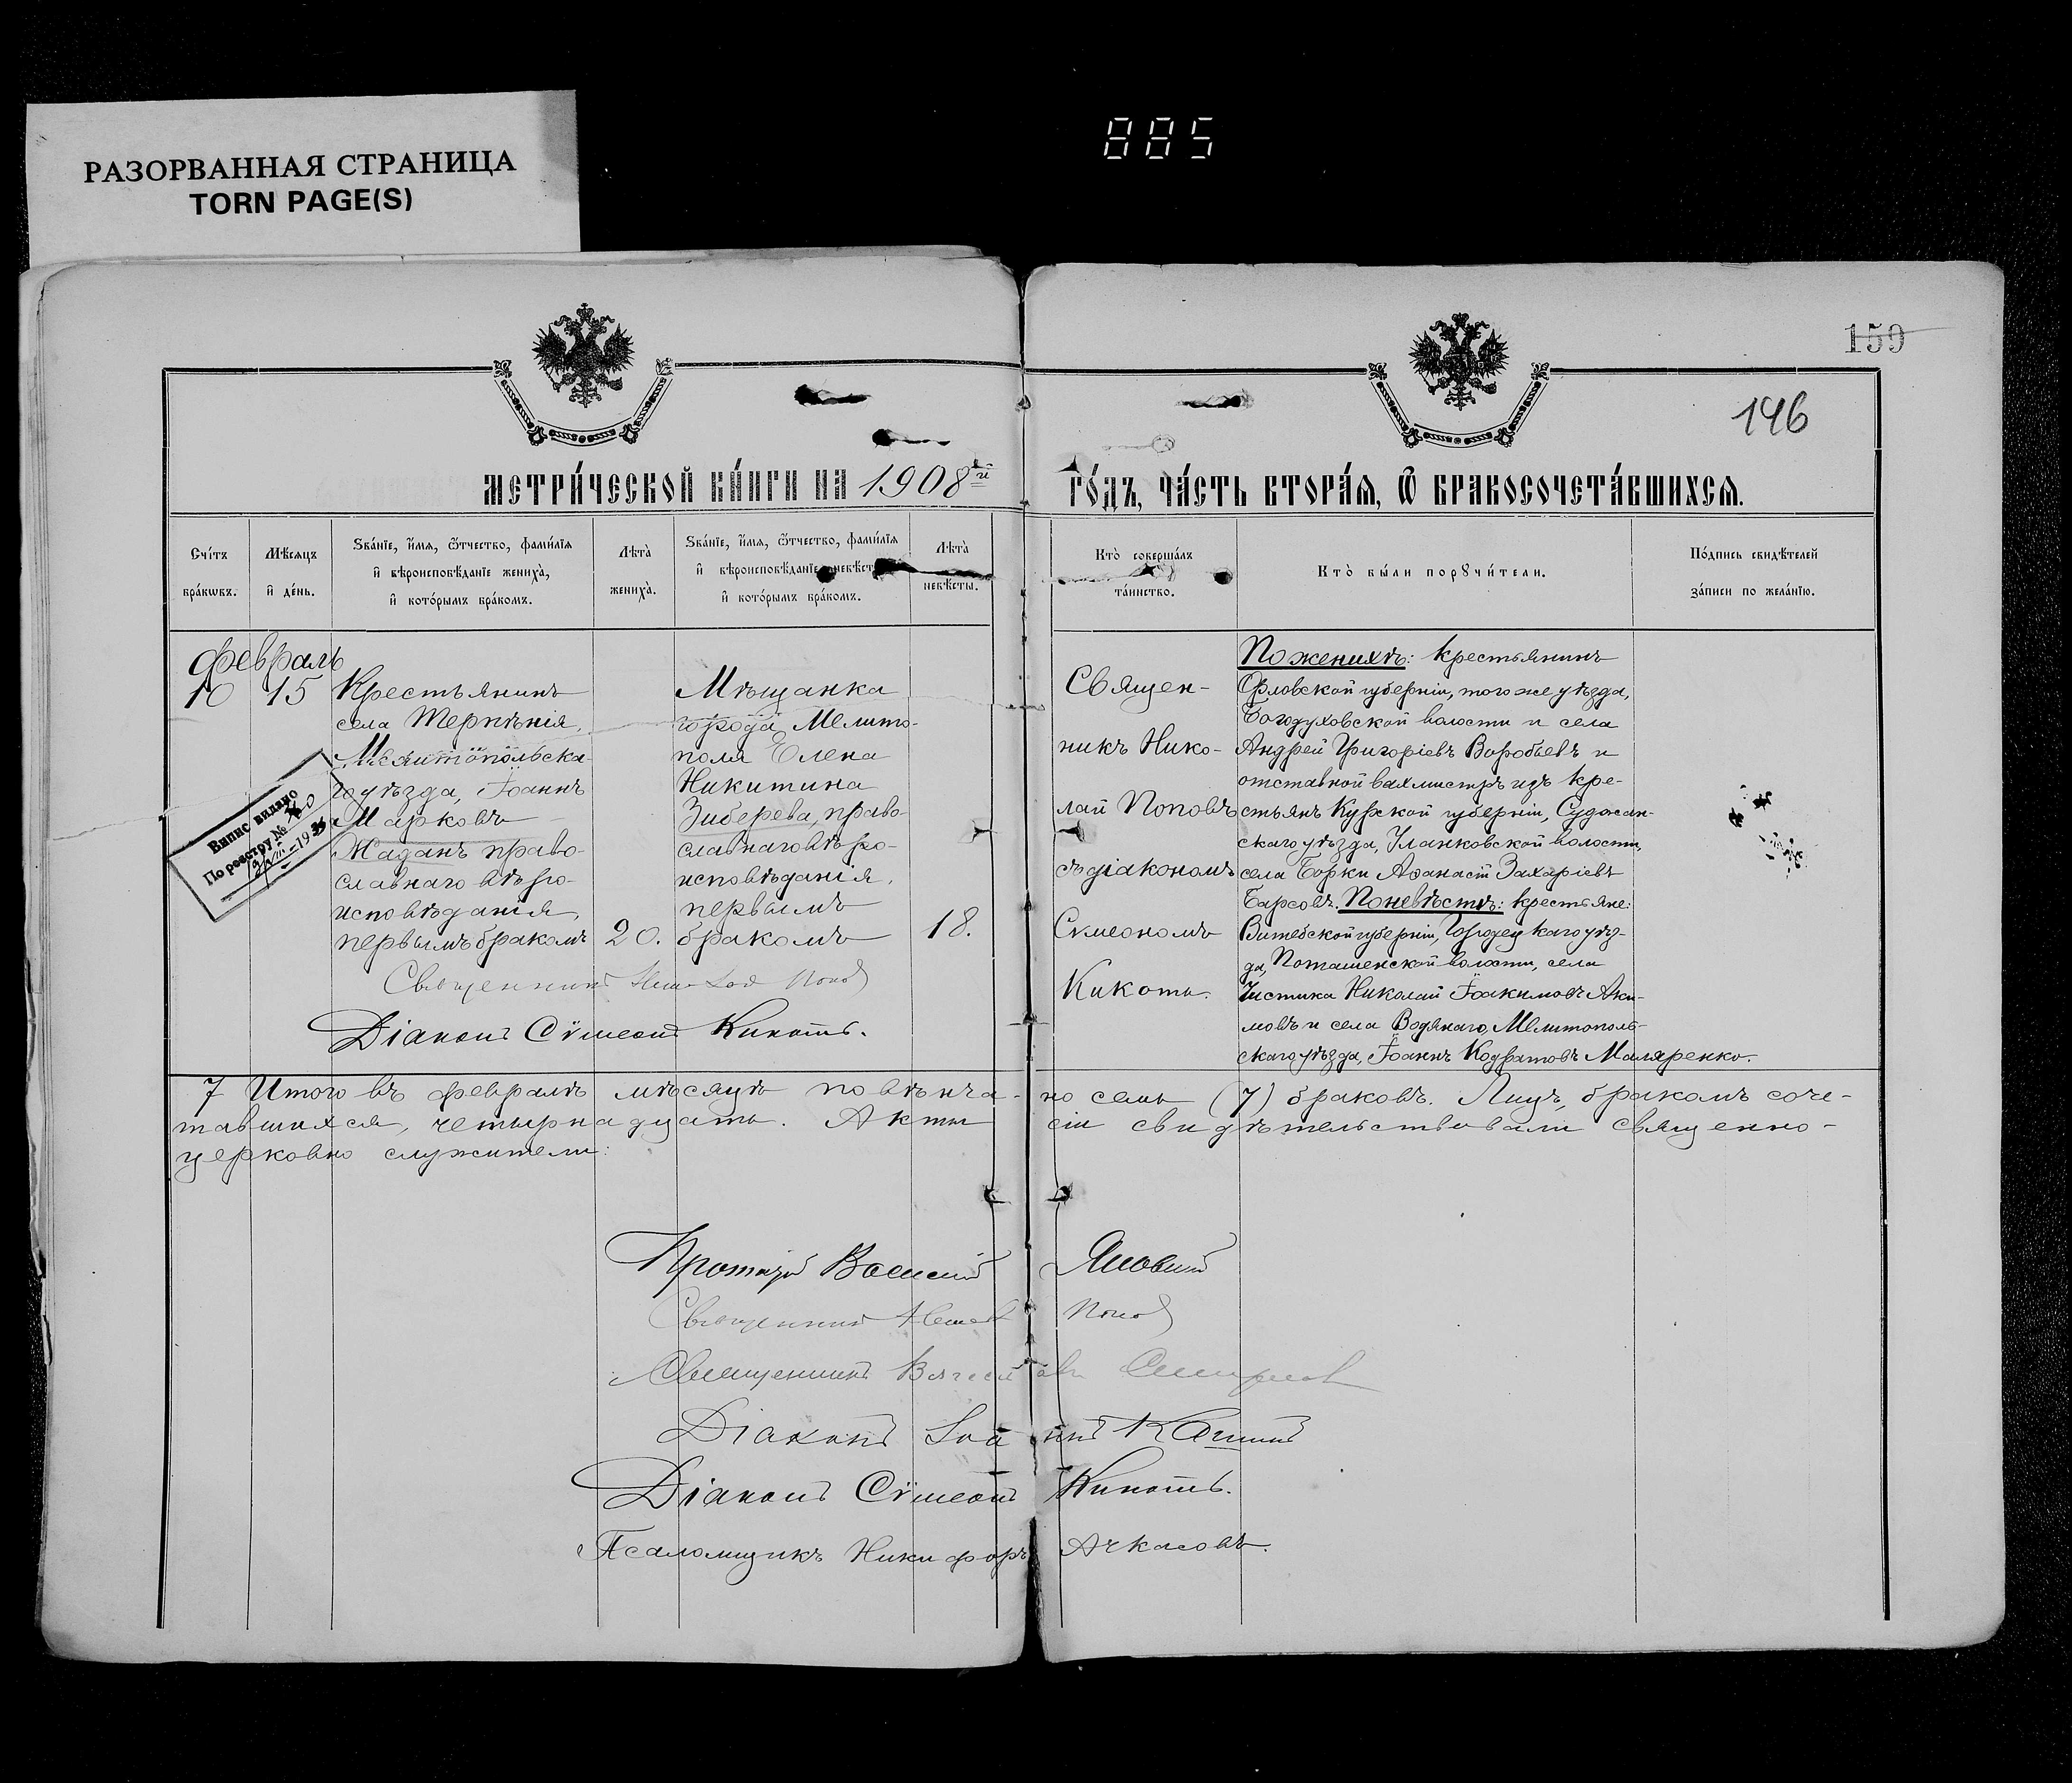 РАЗОРВАННАЯ СТРАНИЦА
TORN PAGE(S)
885
159
146
МЕТРИ́ЧЕСКОЙ КНИ́ГИ НА 1908й ГО́ДЪ, ЧА́СТЬ ВТОРА́Я, Ѿ БРАКОСОЧЕТА́ВШИХСЯ.
Сче́тъ
бра́кѡвъ.
Мѣ́сяцъ
и҆ де́нь.
Ѕва́нїе, и҆́мя, ѻ҆́тчество, фами́лїя
и҆ вѣроисповѣ́данїе жениха̀,
и҆ кото́рымъ бра́комъ.
Лѣта̀
жениха̀.
Ѕва́нїе, и҆́мя, ѻ҆́тчество, фами́лїя
и҆ вѣроисповѣ́данїе невѣ́сты
и҆ кото́рымъ бра́комъ.
Лѣта̀
невѣ́сты.
Кто̀ соверша́лъ
та́инство.
Кто̀ бы́ли порꙋчи́тели.
По́дпись свидѣ́телей
за́писи по жела́нїю.
Февраль
10
15
Крестьянинъ
села Терпѣнія,
Мелитопольска-
го уѣзда, Іоаннъ
Марковъ
Жаданъ право-
славнаго вѣро-
исповѣданія,
первымъ бракомъ
20.
Мѣщанка
города Мелито-
поля Елена
Никитина
Зиберева, право-
славнаго вѣро-
исповѣданія,
первымъ
бракомъ
18.
Священ-
никъ Нико-
лай Поповъ
съ діакономъ
Сѵмеономъ
Кикоть.
По женихѣ: крестьянинъ
Орловской губерніи, того же уѣзда,
Богодуховской волости и села
Андрей Григоріевъ Воробьевъ и
отставной вахмистръ изъ кре-
стьянъ Курской губерніи, Суджан-
скаго уѣзда, Уланковской волости,
села Борки Аѳанасій Захаріевъ
Барсовъ. По невѣстѣ: крестьяне:
Витебской губерніи, Городецкаго уѣз-
да, Поташенской волости, села
Чистика Николай Іоакимовъ Аки-
мовъ и села Водянаго, Мелитополь-
скаго уѣзда, Іоаннъ Кодратовъ Маляренко.
Випис видано
По реєстру №
Священникъ Николай Попов
Діаконъ Сѵмеонъ Кикоть.
7 Итого въ февралѣ мѣсяцѣ повѣнча-но семь (7) браковъ. Лицъ, бракомъ соче-
тавшихся, четырнадцать. Акты сіи свидѣтельствовали священно-
церковно служители:
Протоіерей Василій Яновскій
Священникъ Николай Попов
Священникъ Вячеславъ Смирнов
Діаконъ Іоаннъ
Діаконъ Сѵмеонъ Кикоть.
Псаломщикъ Никифоръ Ачкасовъ.